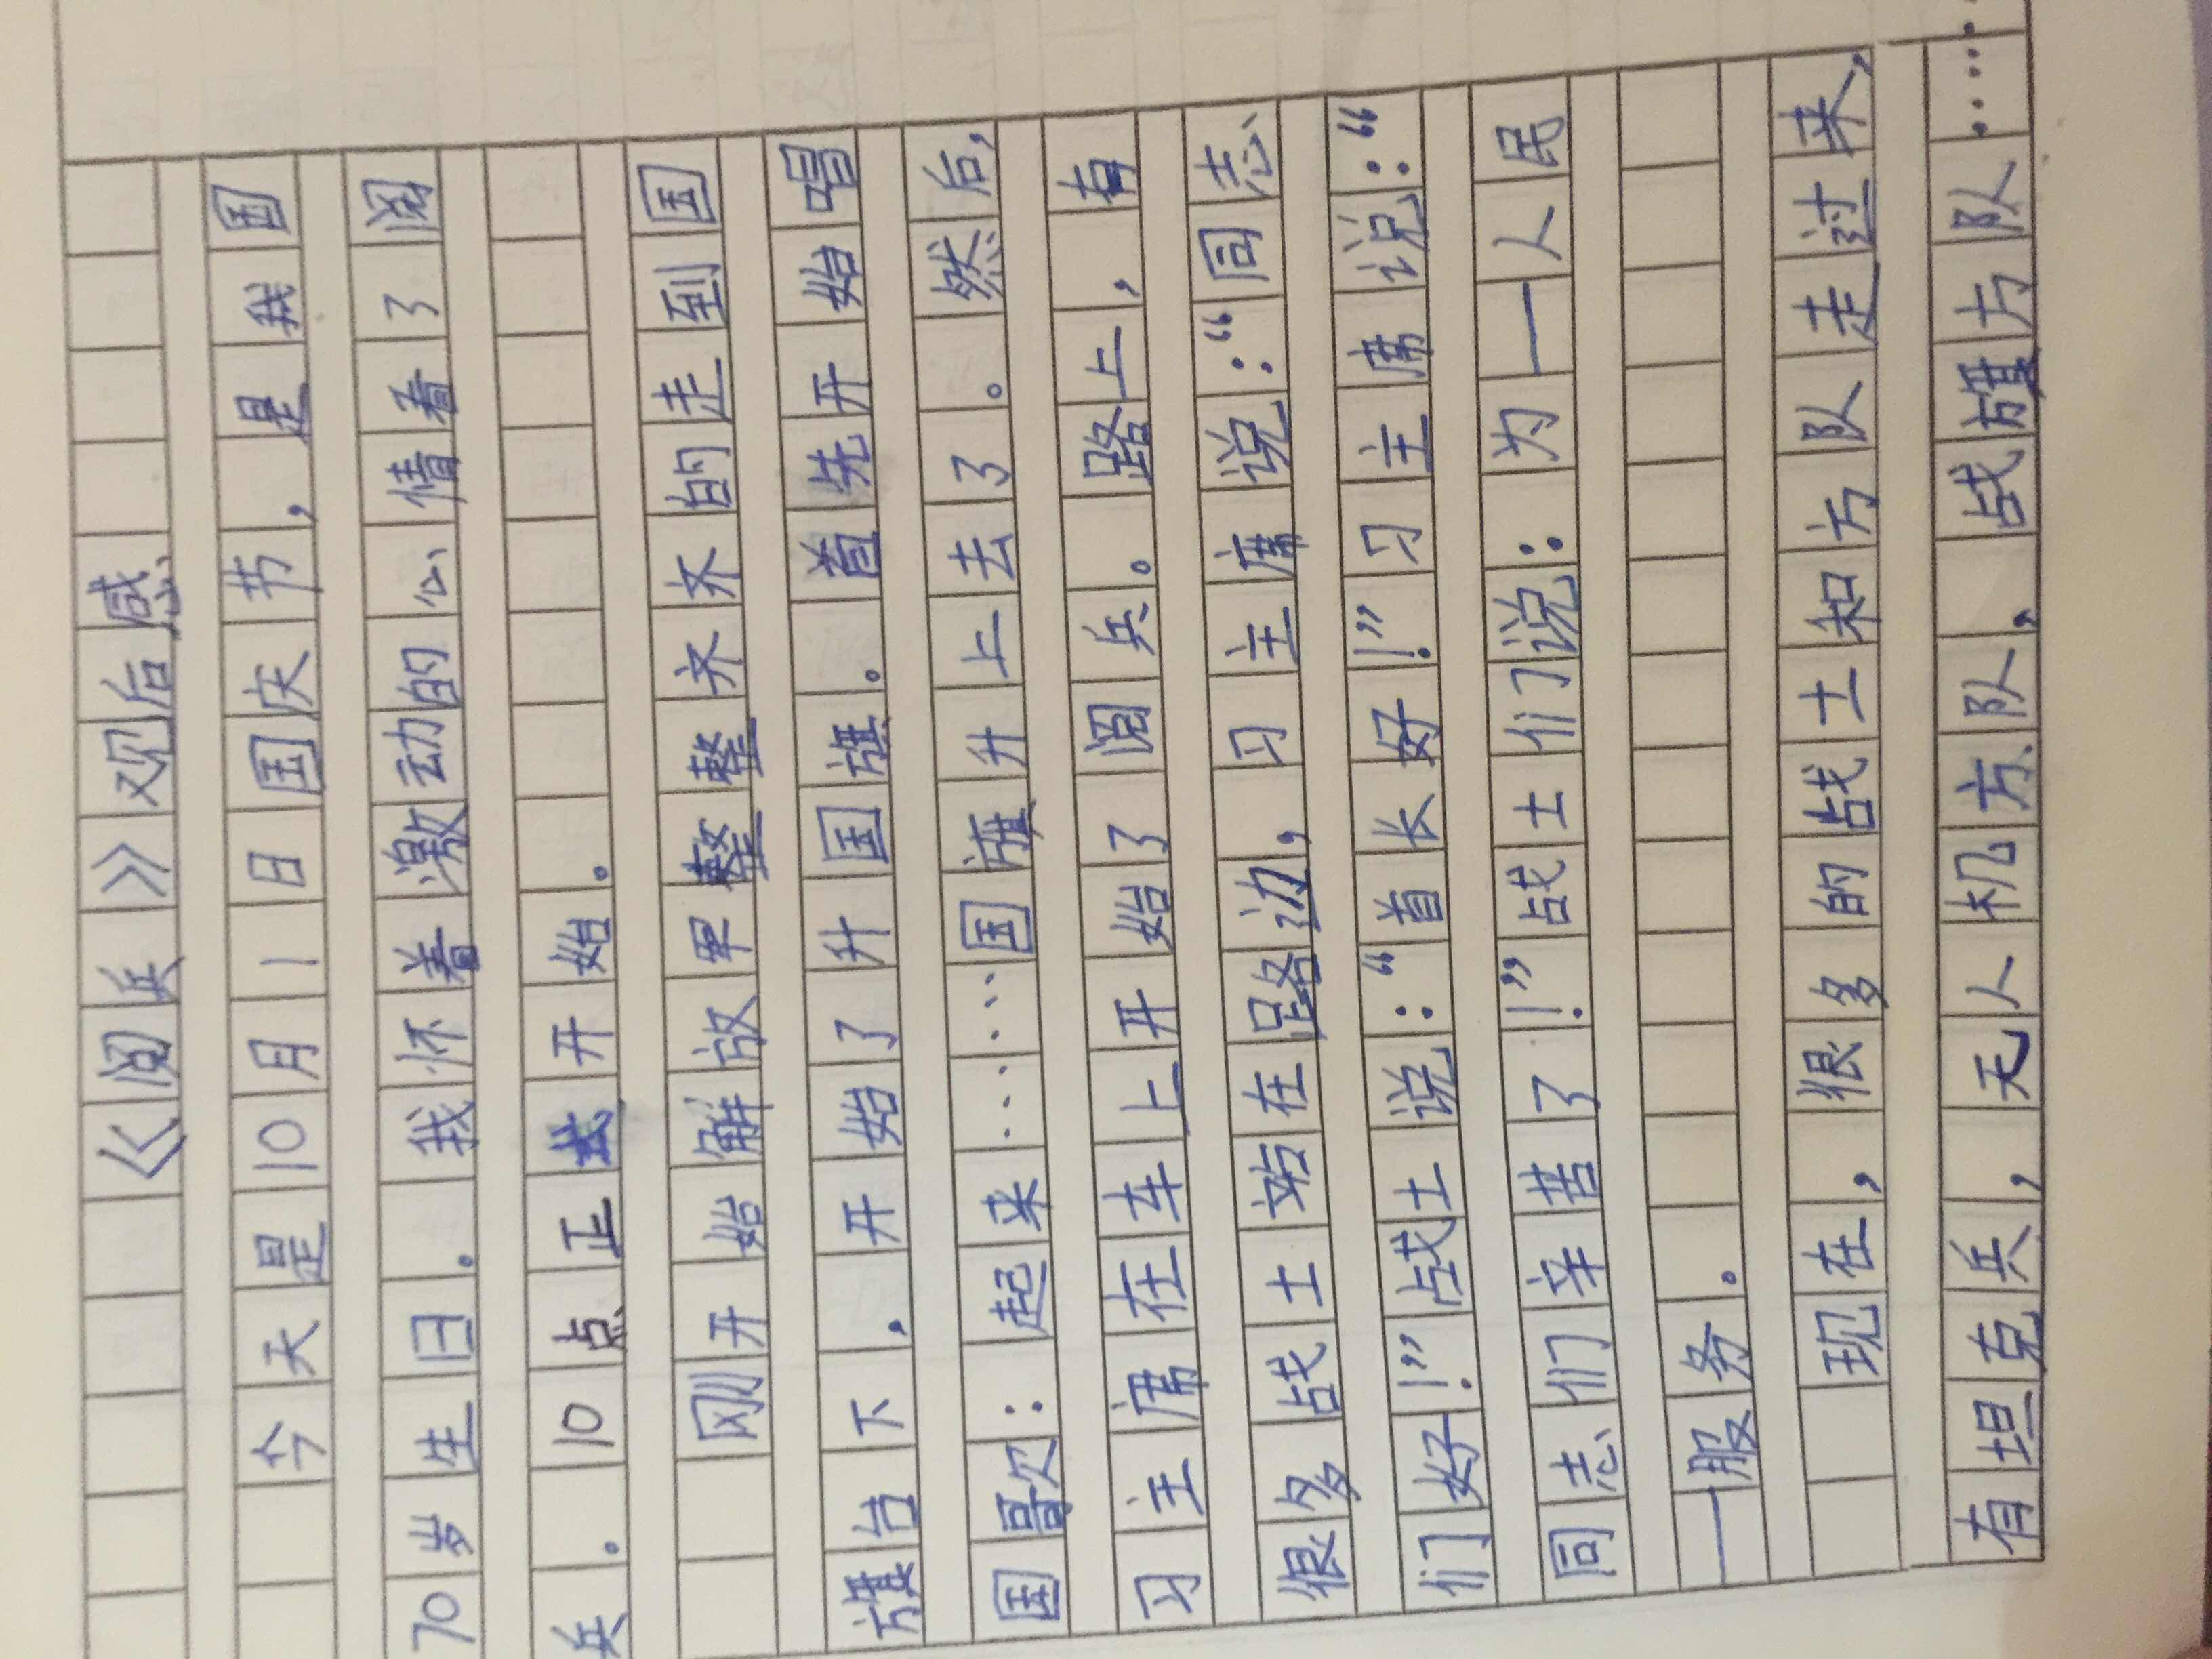 《阅兵》观后感
今天是10月1日国庆节，是我国
70岁生日。我怀着激动的心情看了阅
兵。10点正开始。
刚开始解放军整整齐齐的走到国
旗台下，开始了升国旗。首先开始唱
国歌：起来……国旗升上去了。然后，
习主席在车上开始了阅兵。路上，有
很多战士站在路边，习主席说：“同志
们好！”战士说：“首长好！”习主席说：“
同志们辛苦了！”战士们说：为一人民
一服务。
现在，很多的战士和方队走过来，
有坦克兵，无人机方队、战旗方队……